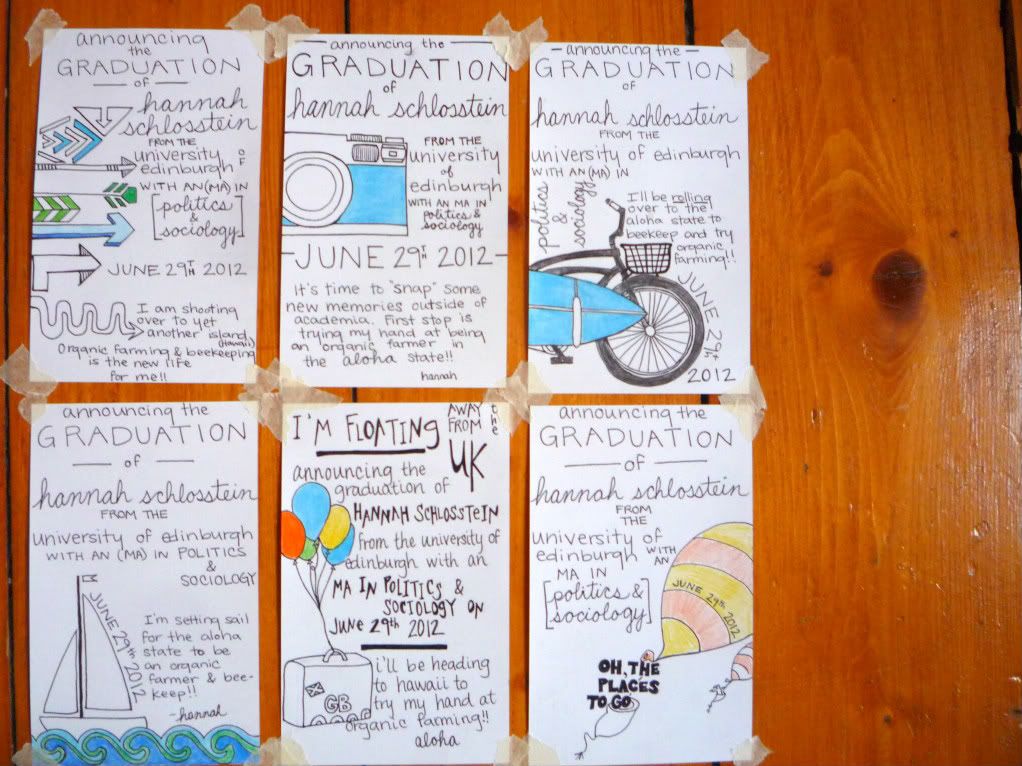 announcing
the
GRADUATION
of
hannah
schlosstein
FROM THE
university OF
edinburgh
WITH AN (MA) IN
[politics
&
sociology]
JUNE 29TH 2012
I am shooting
over to yet
another island
(Hawaii)
Organic farming & beekeeping
is the new life
for me!!
announcing the
GRADUATION
of
hannah schlosstein
FROM THE
university
of
edinburgh
WITH AN MA IN
politics &
sociology
JUNE 29TH 2012
It's time to "snap" some
new memories outside of
academia. First stop is
trying my hand at being
an organic farmer in
the aloha state!!
hannah
announcing the
GRADUATION
OF
hannah schlosstein
FROM THE
university of edinburgh
WITH AN (MA) IN
politics
&
sociology
I'll be rolling
over to the
aloha state to
beekeep and try
organic
farming!!
JUNE 29th
2012
announcing the
GRADUATION
of
hannah schlosstein
FROM THE
university of edinburgh
WITH AN (MA) IN POLITICS
&
SOCIOLOGY
JUNE 29TH 2012
I'm setting sail
for the aloha
state to be
an organic
farmer & bee-
keep!!
-hannah
I'M FLOATING
AWAY
FROM
the
UK
announcing the
graduation of
HANNAH SCHLOSSTEIN
from the university of
edinburgh with an
MA IN POLITICS &
SOCIOLOGY ON
JUNE 29th 2012
GB
i'll be heading
to hawaii to
try my hand at
organic farming!!
aloha
announcing the
GRADUATION
OF
hannah schlosstein
FROM
THE
university of
edinburgh WITH
AN
MA IN
[politics &
sociology]
JUNE 29TH 2012
OH, THE
PLACES
TO GO